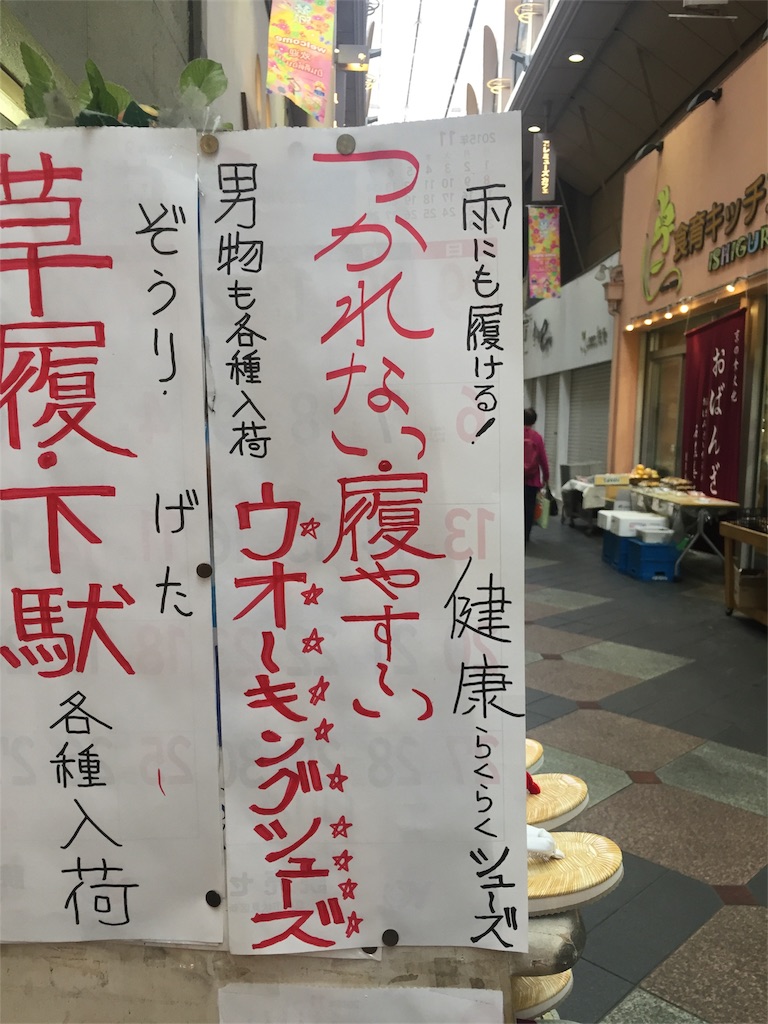 雨にも履ける!
健康らくらくシューズ
つかれない・履やすーい
ウオーキングシューズ
男物も各種入荷
ぞうり・げた
草履・下駄
各種入荷
welcome
食育キッチン
ISHIGUR
おばんざ